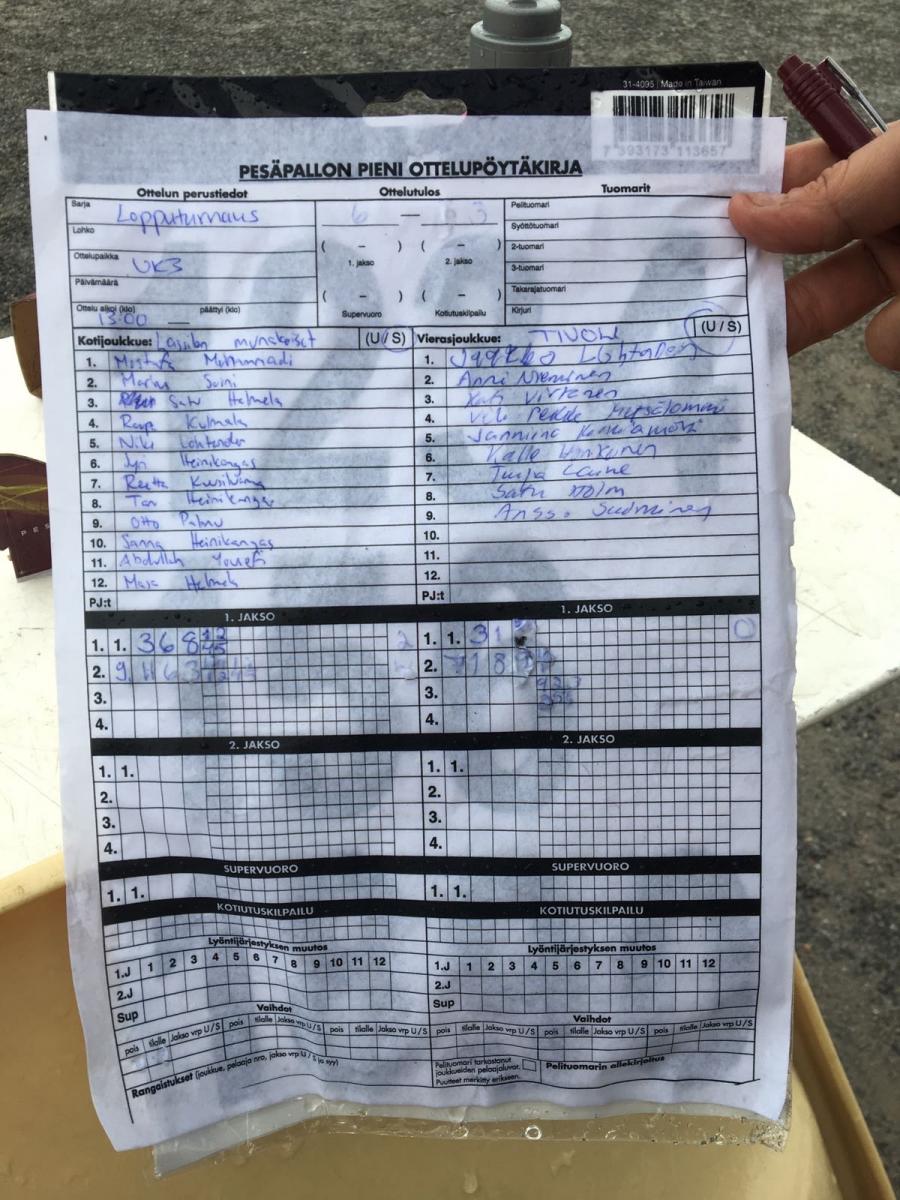 31-4095 | Made in Taiwan
7 393173 113657
PESÄPALLON PIENI OTTELUPÖYTÄKIRJA
Ottelun perustiedot Ottelutulos Tuomarit
Sarja Lopputurnaus
Lohko
Ottelupaikka UK3
Päivämäärä
Ottelu alkoi (klo) päättyi (klo)
13:00
6 — 3
( – ) ( – )
1. jakso 2. jakso
( – ) ( – )
Supervuoro Kotiutuskilpailu
Pelituomari
Syöttötuomari
2-tuomari
3-tuomari
Takarajatuomari
Kirjuri
Kotijoukkue: munakoiset (U / S)
1. Mostafa Mohammadi
2. Markus Soini
3. Satu Helmela
4. Kulmala
5. Niki Lohtander
6. Jyri Heinikangas
7. Reetta
8. Heinikangas
9. Otto Palmu
10. Sanna Heinikangas
11. Abdullah Yousefi
12. Masa Helmela
PJ:t
Vierasjoukkue: TIVOLI (U / S)
1. Jaakko
2. Anni Nieminen
3. Kati Virtanen
4. Veli Pekka
5. Janniina
6. Kalle
7. Tuija Laine
8. Satu Holm
9. Anssi
10.
11.
12.
PJ:t
1. JAKSO
1. 1. 3 6 8 2
2. 9 11 6 3
3.
4.
1. JAKSO
1. 1. 3 1 0
2. 7 1 8
3.
4.
2. JAKSO
1. 1.
2.
3.
4.
2. JAKSO
1. 1.
2.
3.
4.
SUPERVUORO
1. 1.
SUPERVUORO
1. 1.
KOTIUTUSKILPAILU
KOTIUTUSKILPAILU
Lyöntijärjestyksen muutos
1.J 1 2 3 4 5 6 7 8 9 10 11 12
2.J
Sup
Vaihdot
pois tilalle Jakso vrp U / S pois tilalle Jakso vrp U / S pois tilalle Jakso vrp U / S
Lyöntijärjestyksen muutos
1.J 1 2 3 4 5 6 7 8 9 10 11 12
2.J
Sup
Vaihdot
pois tilalle Jakso vrp U / S pois tilalle Jakso vrp U / S pois tilalle Jakso vrp U / S
Rangaistukset (joukkue, pelaaja nro, jakso vrp U / S ja syy)
Pelituomari tarkastanut
joukkueiden pelaajaluvat.
Puutteet merkitty erikseen.
Pelituomarin allekirjoitus